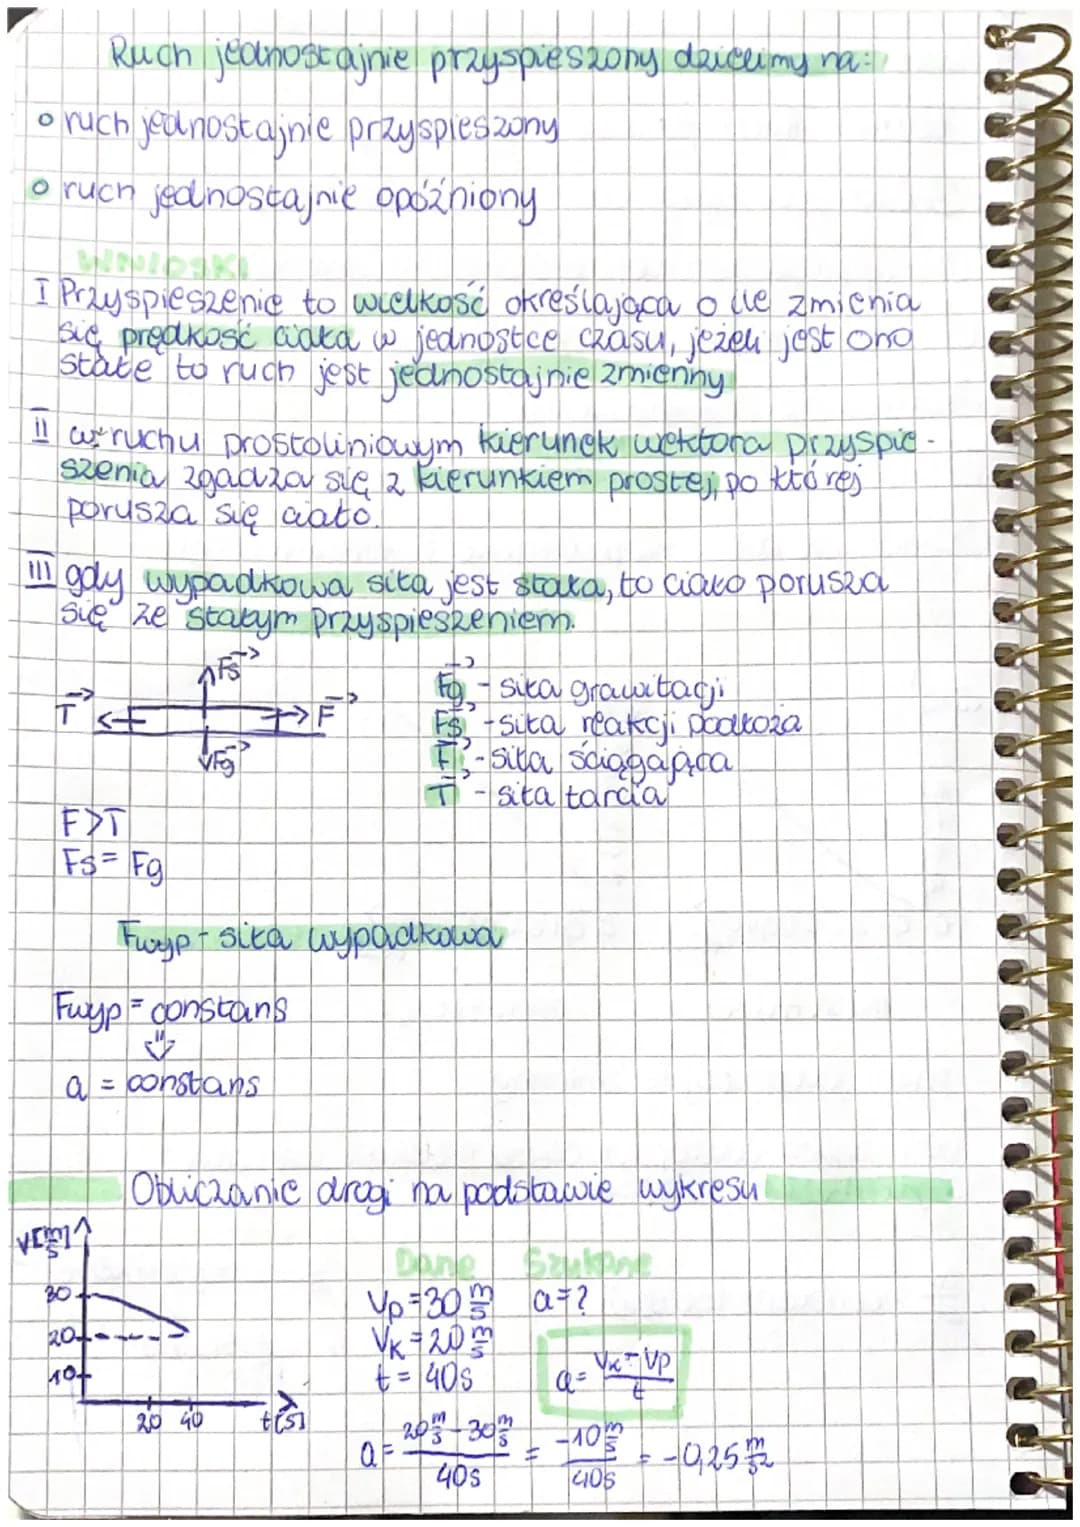 Ruch jednostajnie przyspieszony dzielimy na:
o ruch jednostajnie przyspieszony
o ruch jednostajnie opóźniony
WNIOSKI
I Przyspieszenie to wielkość określająca o ile zmienia
się prędkość ciała w jednostce czasu, jeżeli jest ono
stałe to ruch jest jednostajnie zmienny
II w ruchu prostoliniowym kierunek wektora przyspie-
szenia zgadza się z kierunkiem prostej, po której
porusza się ciało.
III gdy wypadkowa siła jest stała, to ciało porusza
się ze stałym przyspieszeniem.
Fs
T F
Fg
Fg - siła grawitacji
Fs - siła reakcji podłoża
F - siła ściągająca
T - siła tarcia
F>T
Fs = Fg
Fwyp - siła wypadkowa
Fwyp = constans
⇓
a = constans
Obliczanie drogi na podstawie wykresu
V[m/s]
30
20
10
20 40 t[s]
Dane Szukane
Vp = 30 m/s a=?
Vk = 20 m/s
t = 40s
a = Vk - Vp / t
a = 20 m/s - 30 m/s / 40s = -10 m/s / 40s = -0,25 m/s2